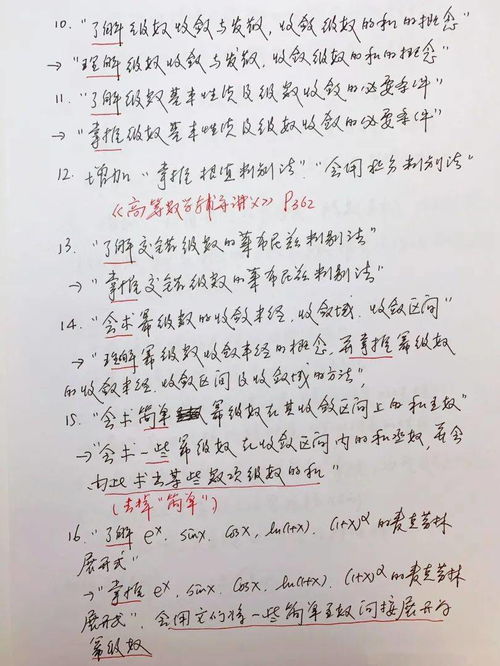 10. "了解级数收敛与发散, 收敛级数的和的概念"
→ "理解级数收敛与发散, 收敛级数的和的概念"
11. "了解级数基本性质及级数收敛的必要条件"
→ "掌握级数基本性质及级数收敛的必要条件"
12. 增加 "掌握根值判别法" "会用积分判别法"
《高等数学辅导讲义》 P362
13. "了解交错级数的莱布尼兹判别法"
→ "掌握交错级数的莱布尼兹判别法"
14. "会求幂级数的收敛半径, 收敛域, 收敛区间"
→ "理解幂级数收敛半径的概念, 并掌握幂级数
的收敛半径, 收敛区间及收敛域的方法",
15. "会求简单幂级数在其收敛区间上的和函数"
→ "会求一些幂级数在收敛区间内的和函数, 并会
由此求出某些数项级数的和"
(去掉"简单")
16. "了解 eˣ, sinx, cosx, ln(1+x), (1+x)^α 的麦克劳林
展开式"
→ "掌握 eˣ, sinx, cosx, ln(1+x), (1+x)^α 的麦克劳林
展开式", 会用它们将一些简单函数间接展开为
幂级数